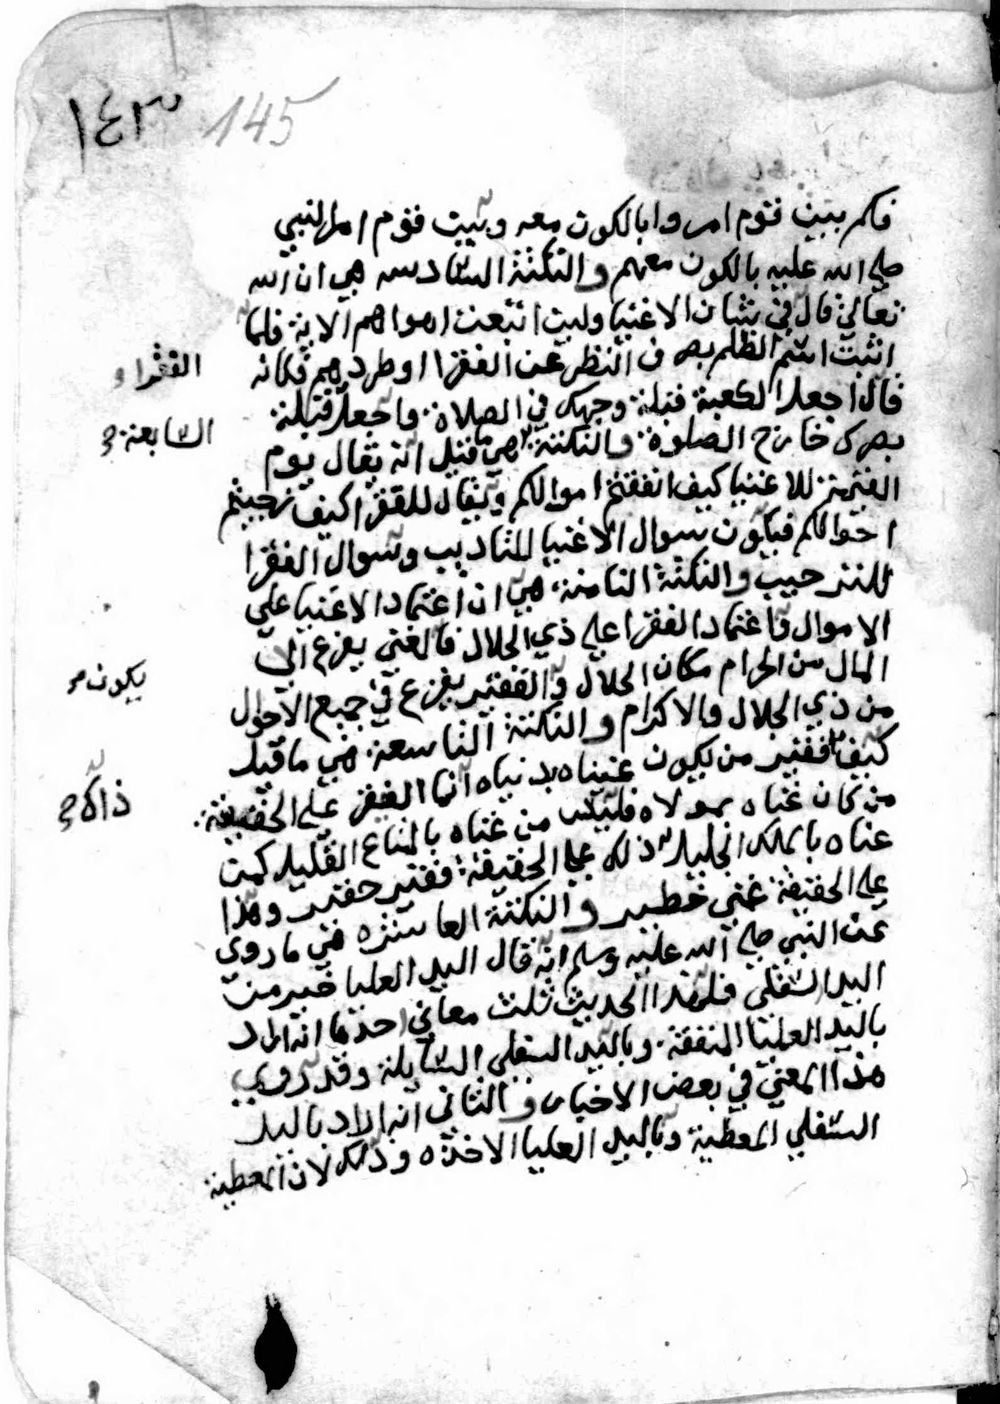 ١٤٣ 145
فكم بين قوم امروا بالكون معه وبين قوم امر النبي
صلى الله عليه بالكون معهم والنكتة السادسه هي ان الله
تعالى قال في شان الاغنيا ولين اتبعت اهواهم الاية فلما
اثبت اسم الظلم بصرف النظر عن الفقرا او طردهم فكانه
الفقرا و
قال اجعل الكعبة قبلة وجهك في الصلاة واجعل قبلة
بصرك خارج الصلوة والنكتة هي ما قيل انه يقال يوم
السابعة
القيمة للاغنيا كيف انفقتم اموالكم ويقال للفقرا كيف
احوالكم فيكون سوال الاغنيا للتاديب وسوال الفقرا
للترحيب والنكتة الثامنة هي ان اعتماد الاغنيا على
الاموال واعتماد الفقرا على ذي الجلال فالغني يفزع الى
المال من الحرام مكان الحلال والفقير يفزع في جميع الاحوال
يكون
من ذي الجلال والاكرام والنكتة التاسعة هي ما قيل
كيف فقير من يكون غيناه بدنياه انما الفقر على الحقيقة
من كان غناه بمولاه فليس من غناه بالمتاع القليل كمن
ذاك
غناه بالملك الجليل ذلك على الحقيقة فقير حقير وهذا
على الحقيقة غني خطير والنكتة العاشره هي ما روى
عن النبي صلى الله عليه وسلم انه قال اليد العليا خير من
اليد السفلى فلهذا الحديث ثلث معاني احدها انه اراد
باليد العليا المنفقة وباليد السفلى السايلة وقد روي
هذا المعنى في بعض الاخبار والثاني انه اراد باليد
السفلي المعطية وباليد العليا الاخذه وذلك لان المعطية